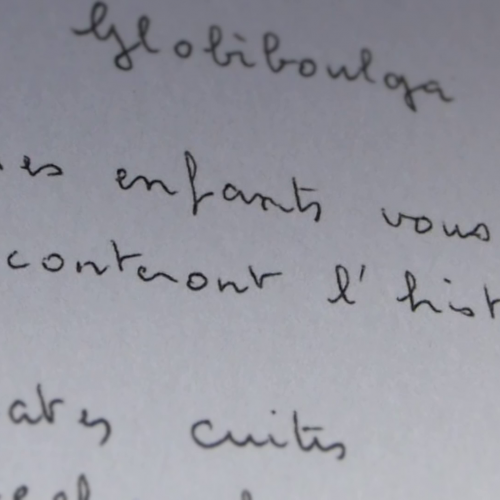 Globiboulga
es enfants vous
conteront l'hist
ates cuites